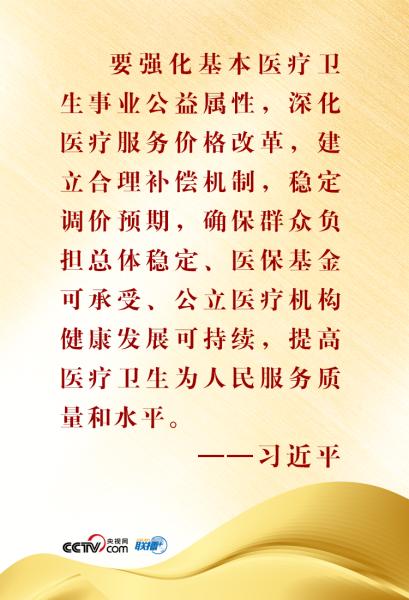 要强化基本医疗卫
生事业公益属性，深化
医疗服务价格改革，建
立合理补偿机制，稳定
调价预期，确保群众负
担总体稳定、医保基金
可承受、公立医疗机构
健康发展可持续，提高
医疗卫生为人民服务质
量和水平。
——习近平
CCTV 央视网
com
联播+